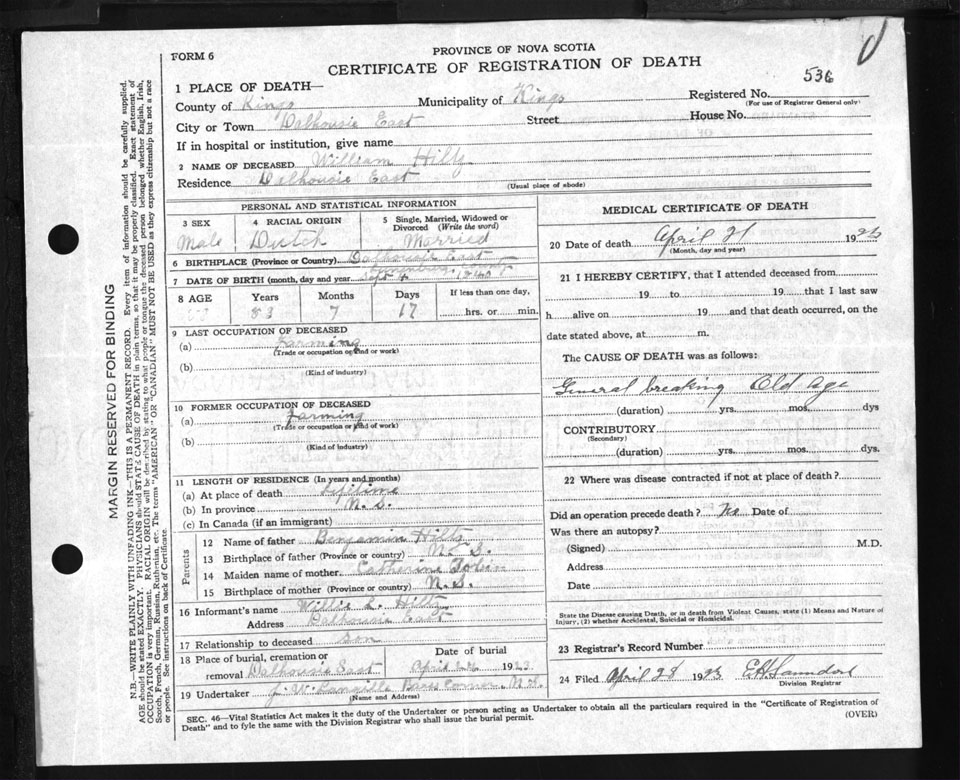 FORM 6
PROVINCE OF NOVA SCOTIA
CERTIFICATE OF REGISTRATION OF DEATH
536
1 PLACE OF DEATH—
County of Kings Municipality of Kings Registered No.
(For use of Registrar General only)
City or Town Dalhousie East Street House No.
If in hospital or institution, give name
2 NAME OF DECEASED William Hilts
Residence Dalhousie East
(Usual place of abode)
PERSONAL AND STATISTICAL INFORMATION
3 SEX Male
4 RACIAL ORIGIN Dutch
5 Single, Married, Widowed or Divorced (Write the word) Married
6 BIRTHPLACE (Province or Country) Dalhousie East
7 DATE OF BIRTH (month, day and year) Sept 4
8 AGE Years Months Days If less than one day,
7 17 hrs. or min.
9 LAST OCCUPATION OF DECEASED
(a) Farming
(Trade or occupation or kind or work)
(b)
(Kind of industry)
10 FORMER OCCUPATION OF DECEASED
(a) Farming
(Trade or occupation or kind of work)
(b)
(Kind of industry)
11 LENGTH OF RESIDENCE (In years and months)
(a) At place of death lifetime
(b) In province N. S.
(c) In Canada (if an immigrant)
Parents
12 Name of father Benjamin Hilts
13 Birthplace of father (Province or country) N. S.
14 Maiden name of mother Catherine
15 Birthplace of mother (Province or country) N. S.
16 Informant's name Willie L. Hilts
Address Dalhousie East
17 Relationship to deceased Son
18 Place of burial, cremation or removal Dalhousie East
Date of burial April 1923
19 Undertaker J. W. N. S.
(Name and Address)
MEDICAL CERTIFICATE OF DEATH
20 Date of death April 21 192
(Month, day and year)
21 I HEREBY CERTIFY, that I attended deceased from
19 to 19 that I last saw
h alive on 19 and that death occurred, on the
date stated above, at m.
The CAUSE OF DEATH was as follows:
General breaking Old Age
(duration) yrs. mos. dys
CONTRIBUTORY
(Secondary)
(duration) yrs. mos. dys.
22 Where was disease contracted if not at place of death?
Did an operation precede death? No Date of
Was there an autopsy?
(Signed) M.D.
Address
Date
State the Disease causing Death, or in death from Violent Causes, state (1) Means and Nature of
Injury, (2) whether Accidental, Suicidal or Homicidal.
23 Registrar's Record Number
24 Filed April 28 1923
Division Registrar
SEC. 46—Vital Statistics Act makes it the duty of the Undertaker or person acting as Undertaker to obtain all the particulars required in the "Certificate of Registration of
Death" and to fyle the same with the Division Registrar who shall issue the burial permit.
(OVER)
MARGIN RESERVED FOR BINDING
N.B.—WRITE PLAINLY WITH UNFADING INK—THIS IS A PERMANENT RECORD. Every item of information should be carefully supplied.
AGE should be stated EXACTLY. PHYSICIANS should STATE CAUSE OF DEATH in plain terms, so that it may be properly classified. Exact statement of
OCCUPATION is very important. RACIAL ORIGIN will be described by stating to what people or tongue the deceased person belonged whether English, Irish,
Scotch, French, German, Russian, Ruthenian, etc. The terms "AMERICAN" OR "CANADIAN" MUST NOT BE USED as they express citizenship but not a race
or people. See instructions on back of Certificate.